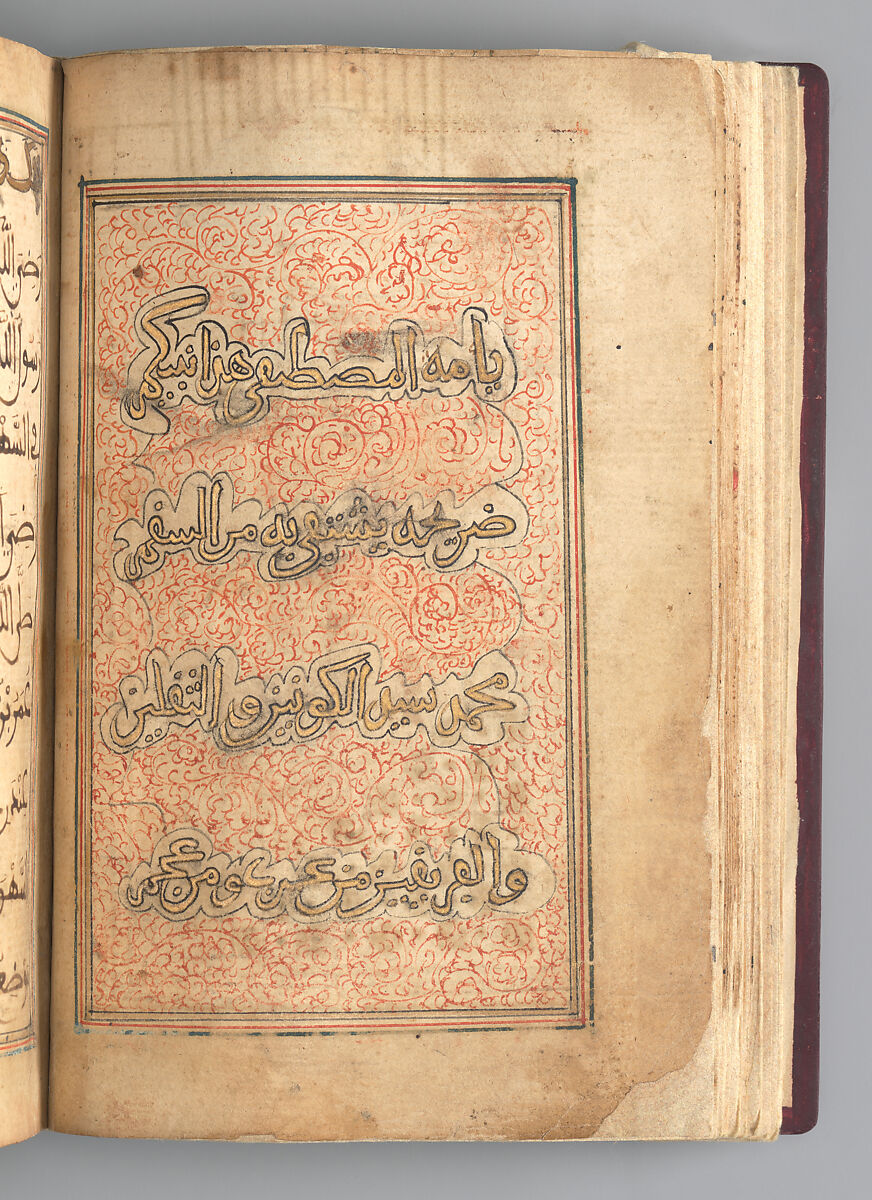 يامة المصطفى هذا نبيكم
ضريحه يشتفى به من السقم
محمد سيد الكونين والثقلين
والفريقين من عرب ومن عجم
رضي الله
رسول الله